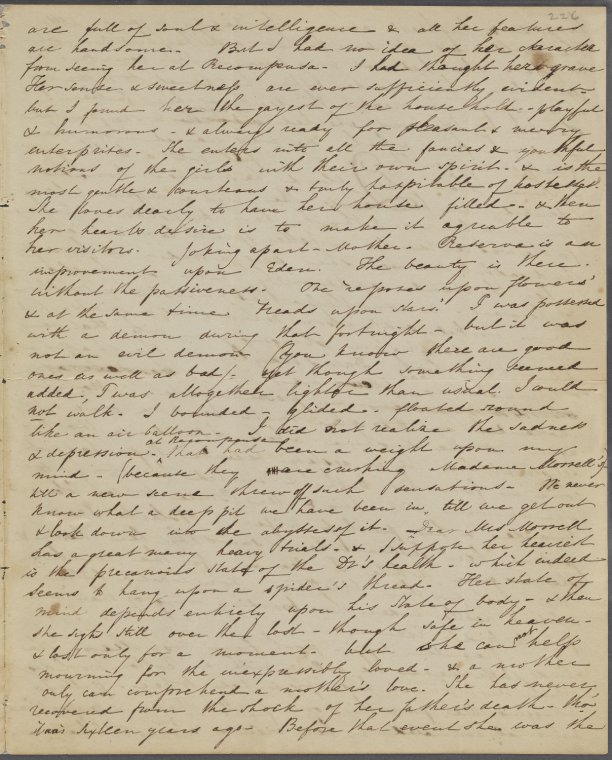 226
are full of soul & intelligence & all her features
are handsome. But I had no idea of her character
from seeing her at Recompensa. I had thought her grave
Her sense & sweetness are ever sufficiently evident
but I found her the gayest of the household - playful
& humorous - & always ready for pleasant & merry
enterprises. She enters into all the fancies & youthful
notions of the girls with their own spirit. & is the
most gentle & courteous & truly hospitable of hostesses.
She loves dearly to have her house filled. & then
her heart's desire is to make it agreable to
her visitors. Joking apart - Mother. Reserva is an
improvement upon Eden. The beauty is there.
without the passiveness. One "reposes upon flowers"
& at the same time "treads upon stars." I was possessed
with a demon during that fortnight - but it was
not an evil demon (You know there are good
ones as well as bad). Yet though something seemed
added, I was altogether lighter than usual. I could
not walk. I bounded - glided - floated round
like an air balloon. I did not realize the sadness
& depression at Recompensa that had been a weight upon my
mind - (because they are crushing Madame Morrell's)
till a new scene threw off such sensations. We never
know what a deep pit we have been in, till we get out
& look down into the abysses of it. Dear Mrs Morrell
has a great many heavy trials. & I suppose her heaviest
is the precarious state of the Dr's health - which indeed
seems to hang upon a spider's thread. Her state of
mind depends entirely upon his state of body - & then
she sighs still over the lost - though safe in heaven -
& lost only for a moment. but she can not help
mourning for the inexpressibly loved - & a mother
only can comprehend a mother's love. She has never
recovered from the shock of her father's death - tho'
it was sixteen years ago - Before that event she was the